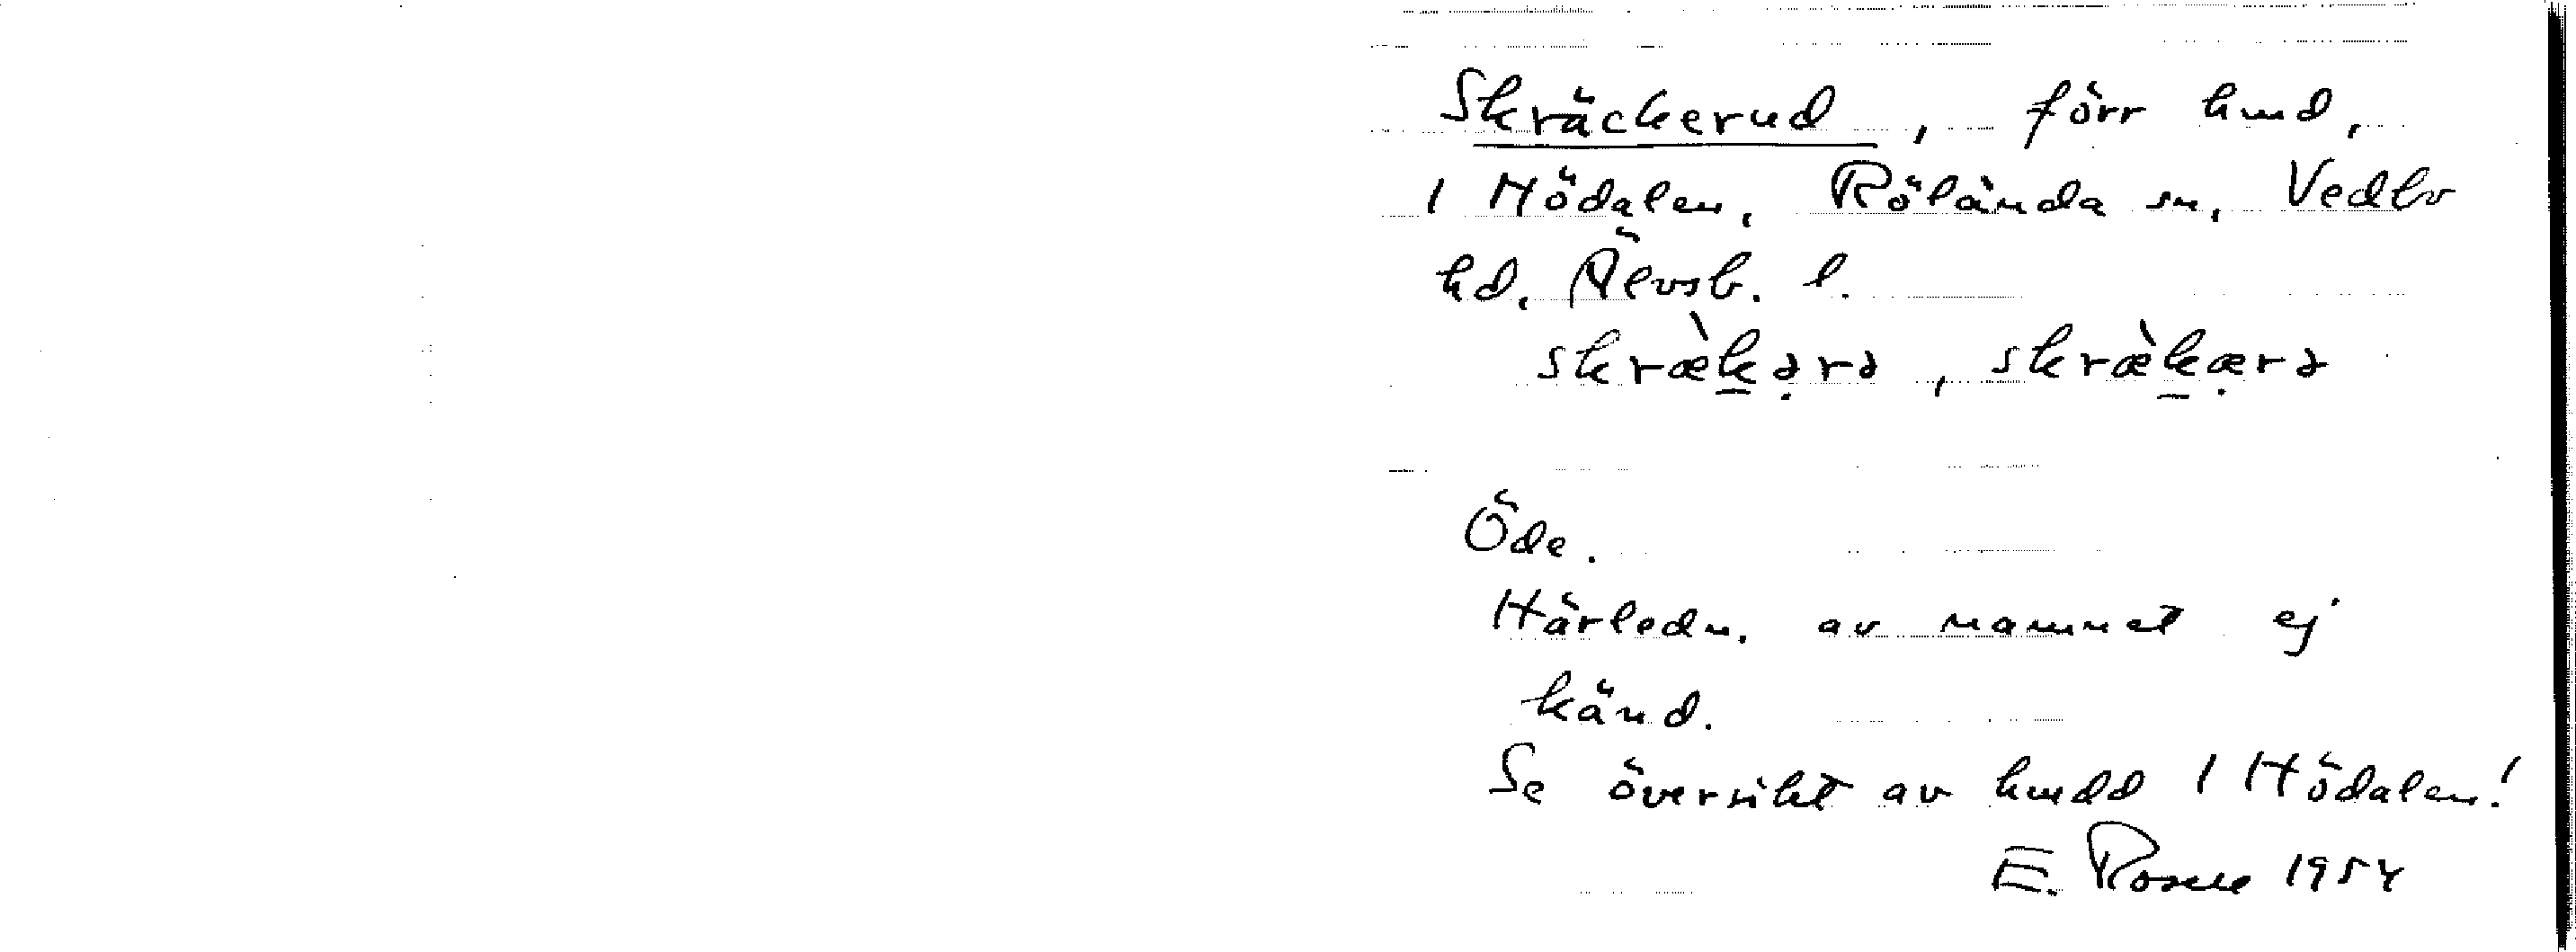 Skräckerud, förr hmd,
i Hödalen, Rölanda sn, Vedbo
hd, Älvsb. l.
skræ̀k̠ə̣rə, skræ̀k̠æ̣rə
Öde.
Härledn. av namnet ej
känd.
Se översikt av hmdd i Hödalen!
E. 1954